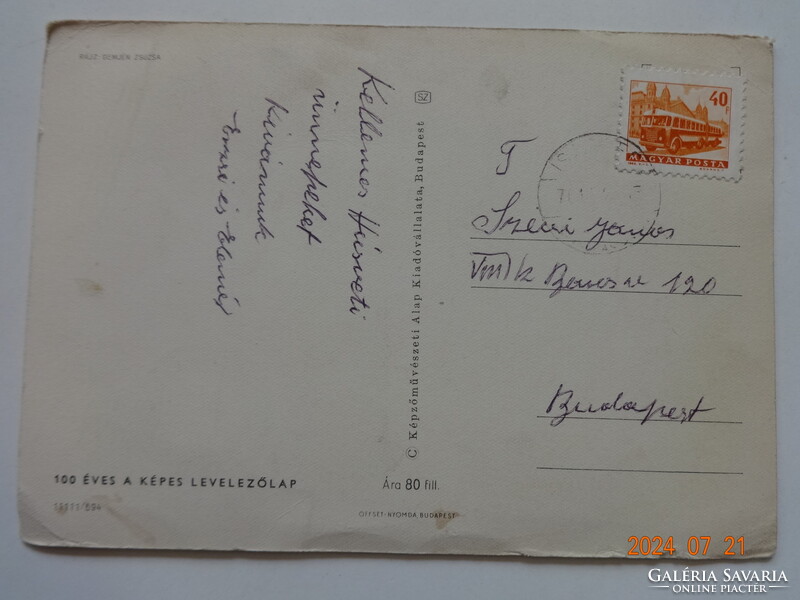 RAJZ: DEMJÉN ZSUZSA
Kellemes Húsvéti
ünnepeket
Kívánunk
Emri és Elemér
© Képzőművészeti Alap Kiadóvállalata, Budapest
SZ
40 F
MAGYAR POSTA
T
János
120
Budapest
100 ÉVES A KÉPES LEVELEZŐLAP
Ára 80 fill.
OFFSET-NYOMDA BUDAPEST
2024 07 21
GALÉRIA SAVARIA
ONLINE PIACTÉR